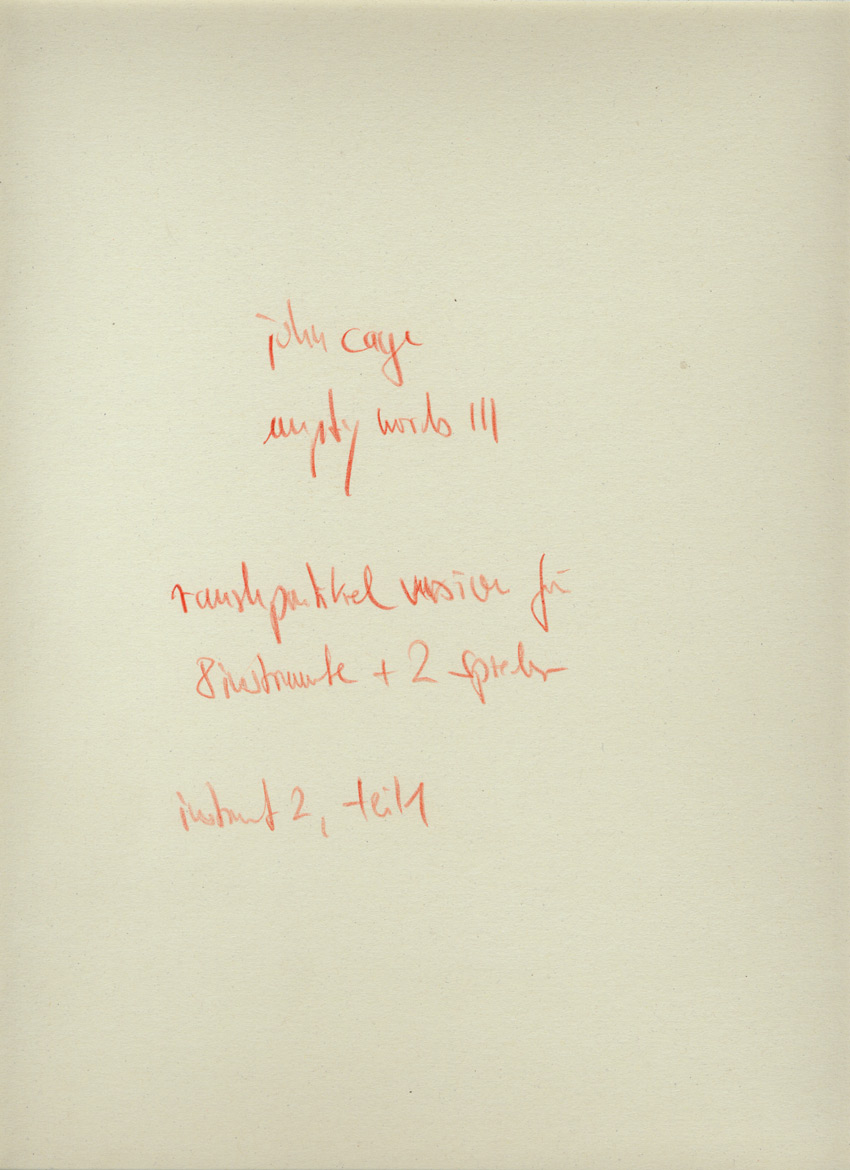 john cage
empty words III
rauschpartikel version für
8 instrumente + 2 spieler
instrument 2, teil 1